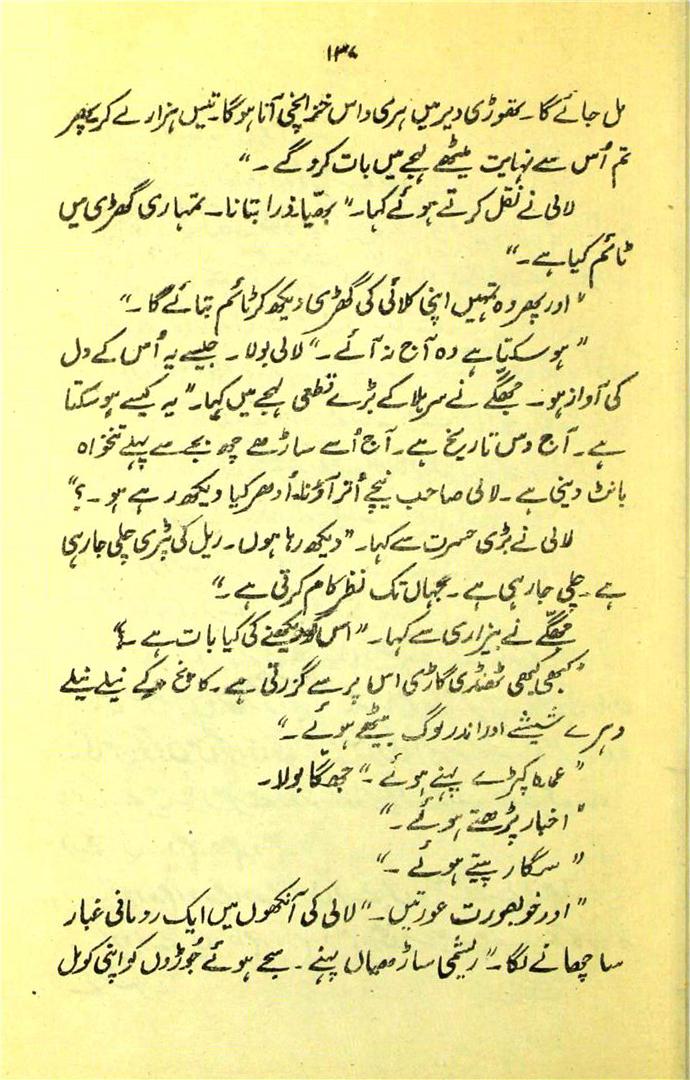 ۱۳۷
مل جائے گا۔ تھوڑی دیر میں ہری داس خزانچی آتا ہوگا۔ تیس ہزار لے کر پھر
تم اُس سے نہایت میٹھے لہجے میں بات کرو گے۔"
لالی نے نقل کرتے ہوئے کہا۔ "بھیّا ذرا بتانا۔ تمہاری گھڑی میں
ٹائم کیا ہے۔"
"اور پھر وہ تمہیں اپنی کلائی کی گھڑی دیکھ کر ٹائم بتائے گا۔"
"ہو سکتا ہے وہ آج نہ آئے۔" لالی بولا۔ جیسے یہ اُس کے دل
کی آواز ہو۔ جھگّے نے سر ہلا کے بڑے قطعی لہجے میں کہا۔ "یہ کیسے ہو سکتا
ہے۔ آج دس تاریخ ہے۔ آج اُسے ساڑھے چھ بجے سے پہلے تنخواہ
بانٹ دینی ہے۔ لالی صاحب نیچے اُتر آؤ نا۔ اُدھر کیا دیکھ رہے ہو۔؟"
لالی نے بڑی حسرت سے کہا۔ "دیکھ رہا ہوں۔ ریل کی پٹری چلی جا رہی
ہے۔ چلی جا رہی ہے۔ جہاں تک نظر کام کرتی ہے۔"
جھگّے نے بیزاری سے کہا۔ "اس کو دیکھنے کی کیا بات ہے۔"
"کبھی کبھی ٹھنڈی گاڑی اس پر سے گزرتی ہے۔ کانچ کے نیلے نیلے
دہرے شیشے اور اندر لوگ بیٹھے ہوئے۔"
"عمدہ کپڑے پہنے ہوئے۔" جھگّا بولا۔
"اخبار پڑھتے ہوئے۔"
"سگار پیتے ہوئے۔"
"اور خوبصورت عورتیں۔" لالی کی آنکھوں میں ایک رومانی غبار
سا چھانے لگا۔ "ریشمی ساڑھیاں پہنے۔ سجے ہوئے جُوڑوں کو اپنی کومل